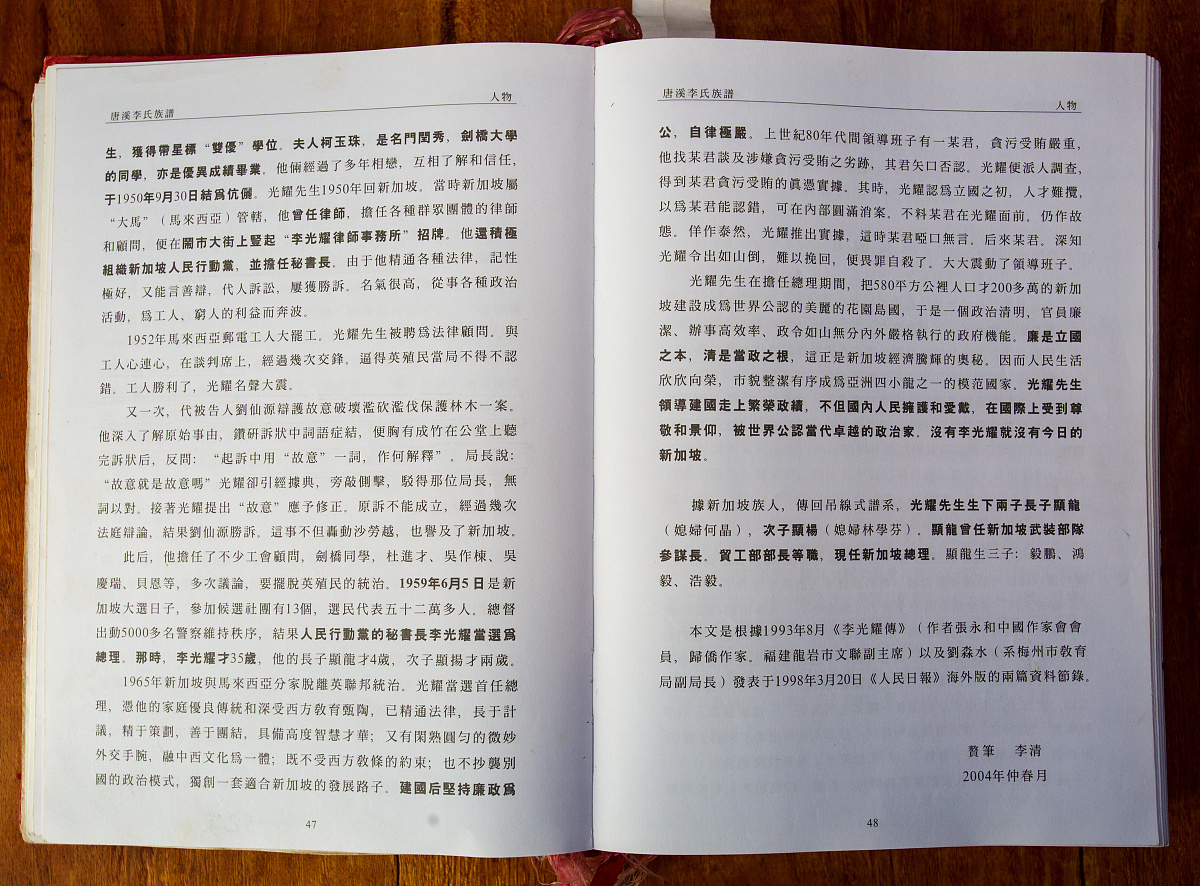 唐溪李氏族譜
人物
生，獲得帶星標“雙優”學位。夫人柯玉珠，是名門閨秀，劍橋大學
的同學，亦是優異成績畢業。他倆經過了多年相戀，互相了解和信任，
于1950年9月30日結爲伉儷。光耀先生1950年回新加坡。當時新加坡屬
“大馬”（馬來西亞）管轄，他曾任律師，擔任各種群眾團體的律師
和顧問，便在鬧市大街上豎起“李光耀律師事務所”招牌。他還積極
組織新加坡人民行動黨，並擔任秘書長。由于他精通各種法律，記性
極好，又能言善辯，代人訴訟，屢獲勝訴。名氣很高，從事各種政治
活動，爲工人、窮人的利益而奔波。
1952年馬來西亞郵電工人大罷工。光耀先生被聘爲法律顧問。與
工人心連心，在談判席上，經過幾次交鋒。逼得英殖民當局不得不認
錯。工人勝利了，光耀名聲大震。
又一次，代被告人劉仙源辯護故意破壞濫砍濫伐保護林木一案。
他深入了解原始事由，鑽研訴狀中詞語症結，便胸有成竹在公堂上聽
完訴狀后，反問：“起訴中用“故意”一詞，作何解釋”。局長說：
“故意就是故意嗎”光耀卻引經據典，旁敲側擊，駁得那位局長，無
詞以對。接著光耀提出“故意”應予修正。原訴不能成立，經過幾次
法庭辯論，結果劉仙源勝訴。這事不但轟動沙勞越，也譽及了新加坡。
此后，他擔任了不少工會顧問，劍橋同學，杜進才、吳作棟、吳
慶瑞、貝恩等，多次議論，要擺脫英殖民的統治。1959年6月5日是新
加坡大選日子，參加候選社團有13個，選民代表五十二萬多人。總督
出動5000多名警察維持秩序，結果人民行動黨的秘書長李光耀當選爲
總理。那時，李光耀才35歲，他的長子顯龍才4歲，次子顯揚才兩歲。
1965年新加坡與馬來西亞分家脫離英聯邦統治。光耀當選首任總
理，憑他的家庭優良傳統和深受西方敎育甄陶，已精通法律，長于計
議，精于策劃，善于團結，具備高度智慧才華；又有閑熟圓勻的微妙
外交手腕，融中西文化爲一體；既不受西方敎條的約束；也不抄襲別
國的政治模式，獨創一套適合新加坡的發展路子。建國后堅持廉政爲
47
唐溪李氏族譜
人物
公，自律極嚴。上世紀80年代間領導班子有一某君，貪污受賄嚴重，
他找某君談及涉嫌貪污受賄之劣跡，其君矢口否認。光耀便派人調查，
得到某君貪污受賄的眞憑實據。其時，光耀認爲立國之初，人才難攬，
以爲某君能認錯，可在內部圓滿消案。不料某君在光耀面前。仍作故
態。佯作泰然，光耀推出實據，這時某君啞口無言。后來某君。深知
光耀令出如山倒，難以挽回，便畏罪自殺了。大大震動了領導班子。
光耀先生在擔任總理期間，把580平方公裡人口才200多萬的新加
坡建設成爲世界公認的美麗的花園島國，于是一個政治清明，官員廉
潔、辦事高效率、政令如山無分內外嚴格執行的政府機能。廉是立國
之本，清是當政之根，這正是新加坡經濟騰輝的奧秘。因而人民生活
欣欣向榮，市貌整潔有序成爲亞洲四小龍之一的模范國家。光耀先生
領導建國走上繁榮政績，不但國內人民擁護和愛戴，在國際上受到尊
敬和景仰，被世界公認當代卓越的政治家。沒有李光耀就沒有今日的
新加坡。
據新加坡族人，傳回吊線式譜系，光耀先生生下兩子長子顯龍
（媳婦何晶），次子顯楊（媳婦林學芬）。顯龍曾任新加坡武裝部隊
參謀長。貿工部部長等職，現任新加坡總理。顯龍生三子：毅鵬、鴻
毅、浩毅。
本文是根據1993年8月《李光耀傳》（作者張永和中國作家會會
員，歸僑作家。福建龍岩市文聯副主席）以及劉淼水（系梅州市敎育
局副局長）發表于1998年3月20日《人民日報》海外版的兩篇資料節錄。
贅筆　李清
2004年仲春月
48